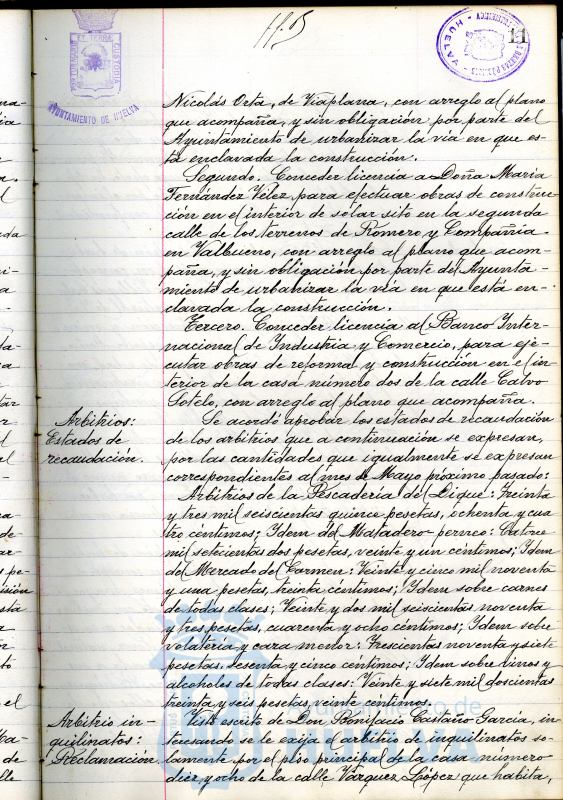 11
AYUNTAMIENTO DE HUELVA
HUELVA
Nicolás Orta, de Viaplana, con arreglo al plano
que acompaña, y sin obligación por parte del
Ayuntamiento de urbanizar la vía en que es-
tá enclavada la construcción.
Segundo. Conceder licencia a Doña María
Fernández Vélez para efectuar obras de construc-
ción en el interior de solar sito en la segunda
calle de los terrenos de Romero y Compañia
en Valbueno, con arreglo al plano que acom-
paña, y sin obligación por parte del Ayunta-
miento de urbanizar la vía en que está en-
clavada la construcción.
Tercero. Conceder licencia al Banco Inter-
nacional de Industria y Comercio, para eje-
cutar obras de reforma y construcción en el in-
terior de la casa número dos de la calle Calvo
Sotelo, con arreglo al plano que acompaña.
Arbitrios:
Estados de
recaudación.
Se acordó aprobar los estados de recaudación
de los arbitrios que a continuación se expresan,
por las cantidades que igualmente se expresan
correspondientes al mes de Mayo próximo pasado:
Arbitrios de la Pescadería del Dique: Treinta
y tres mil seiscientas quince pesetas, ochenta y cua
tro céntimos; Idem del Matadero perneo: Catorce
mil setecientas dos pesetas, veinte y un centimos; Idem
del Mercado del Carmen: Veinte y cinco mil noventa
y una pesetas, treinta céntimos; Idem sobre carnes
de todas clases: Veinte y dos mil seiscientas noventa
y tres pesetas, cuarenta y ocho céntimos; Idem sobre
volatería y caza menor: Trescientas noventa y siete
pesetas, sesenta y cinco céntimos; Idem sobre vinos y
alcoholes de todas clases: Veinte y siete mil doscientas
treinta y seis pesetas, veinte céntimos.
Arbitrio in-
quilinatos:
Reclamación.
Visto escrito de Don Bonifacio Castaño García, in-
teresando se le exija el arbitrio de inquilinatos so-
lamente por el piso principal de la casa número
diez y ocho de la calle Vázquez López que habita,
Ayuntamiento de
HUELVA